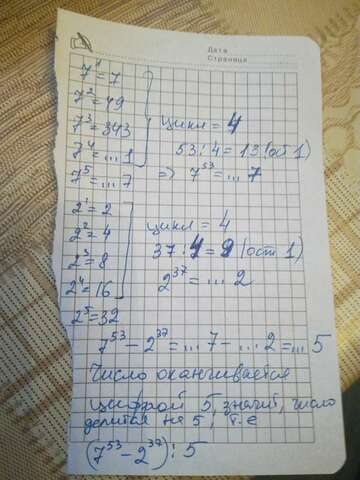 Дата
Страница
7¹ = 7
7² = 49
7³ = 343
7⁴ = ... 1
7⁵ = ... 7
цикл = 4
53 : 4 = 13 (ост 1)
=> 7⁵³ = ... 7
2¹ = 2
2² = 4
2³ = 8
2⁴ = 16
2⁵ = 32
цикл = 4
37 : 4 = 9 (ост 1)
2³⁷ = ... 2
7⁵³ - 2³⁷ = ... 7 - ... 2 = ... 5
Число оканчивается
цифрой 5, значит, число
делится на 5, т.е
(7⁵³ - 2³⁷) ⋮ 5